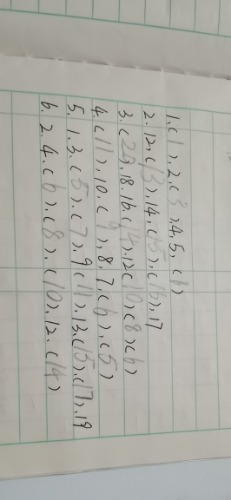 1.(1).2.(3).4.5.(6)
2.12.(13).14.(15).(16).17
3.(20).18.16.(14).12.(10).(8)(6)
4.(11).10.(9).8.7.(6).(5)
5.1.3.(5).(7).9.(11).13.(15).(17).19
6.2.4.(6).(8).(10).12.(14)